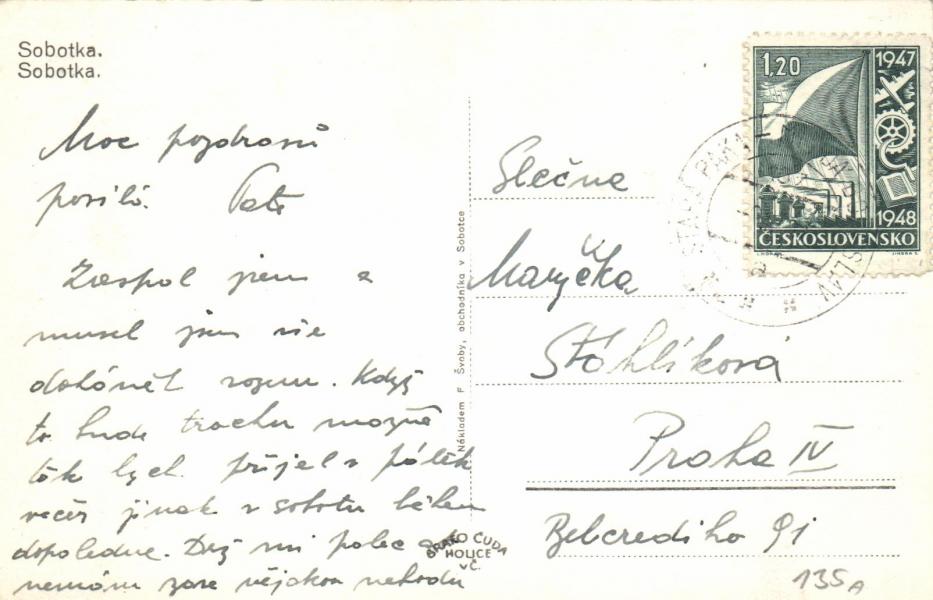 Sobotka.
Sobotka.
Moc pozdravů
posílá. Peťa
Zaspal jsem a
musel jsem vše
dohánět vozem. Když
to bude trochu možné
tak bych přijel v pátek
večer jinak v sobotu během
dopoledne. Drž mi palec a
nemám zase nějakou nehodu
Nákladem F. Švoby, obchodníka v Sobotce
BRAFO ČUDA
HOLICE
v Č.
1,20
1947
1948
ČESKOSLOVENSKO
STARÁ PAKA
Slečna
Maryčka
Stáhlíková
Praha IV
Belcrediho 91
135A